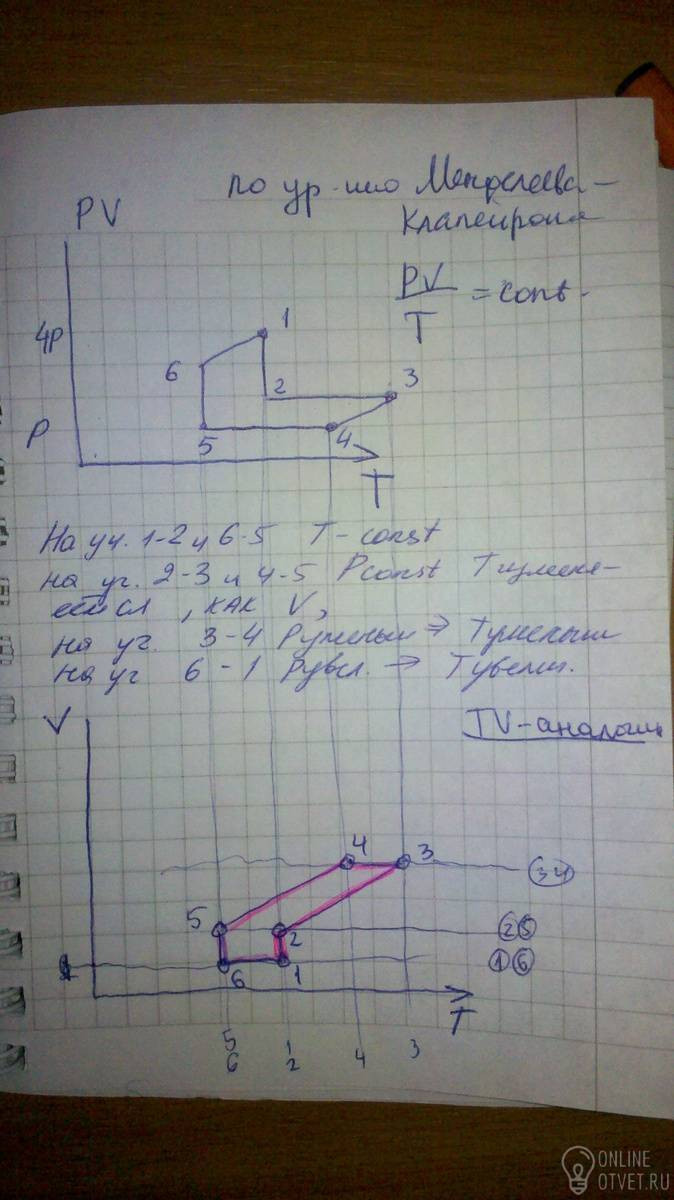 по ур-ию Менделеева-
Клапейрона
PV
PV
T
= const.
4p
P
1
6
2
3
5
4
T
На уч. 1-2 и 6-5 T-const
на уч. 2-3 и 4-5 Pconst Tизменя-
ется, как V,
на уч. 3-4 Pуменьш ⇒ Tуменьш
на уч 6-1 Pувел. → Tувелич.
V
TV-аналогич
4
3
34
5
2
25
6
1
16
T
5
6
1
2
4
3
ONLINE
OTVET.RU